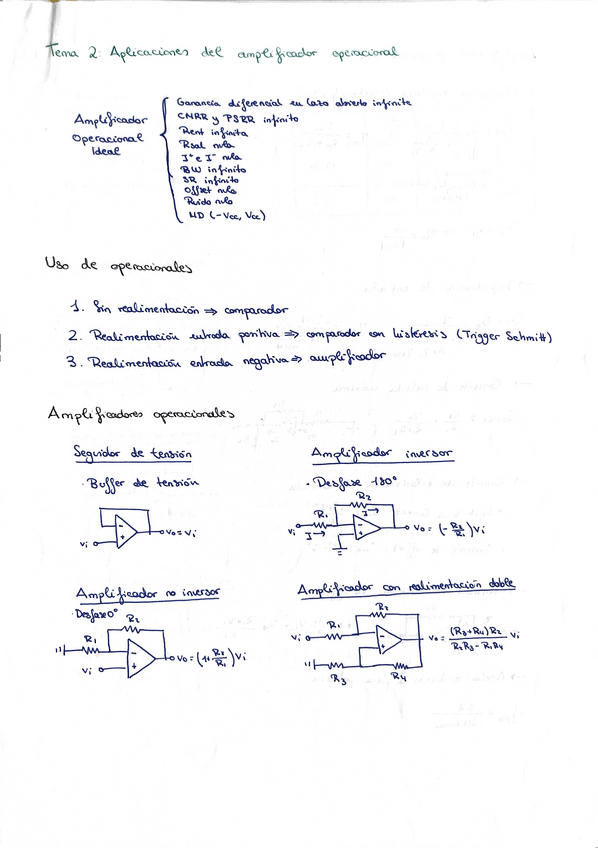 Tema 2: Aplicaciones del amplificador operacional
Amplificador
Operacional
Ideal
Ganancia diferencial en lazo abierto infinite
CMRR y PSRR infinito
Rent infinita
Rsal nula
I+ e I- nula
BW infinito
SR infinito
Offset nulo
Ruido nulo
MD (-Vcc, Vcc)
Uso de operacionales
1. Sin realimentación ⇒ comparador
2. Realimentación entrada positiva ⇒ comparador con histéresis (Trigger Schmitt)
3. Realimentación entrada negativa ⇒ amplificador
Amplificadores operacionales
Seguidor de tensión
· Buffer de tensión
Vi
Vo = Vi
Amplificador inversor
· Desfase 180°
R2
I →
R1
Vi
I →
Vo = (-R2/R1) Vi
Amplificador no inversor
· Desfase 0°
R2
R1
Vi
Vo = (1+ R2/R1) Vi
Amplificador con realimentación doble
R2
R1
Vi
Vo = (R3+R4)R2 / R2R3 - R1R4 Vi
R3
R4